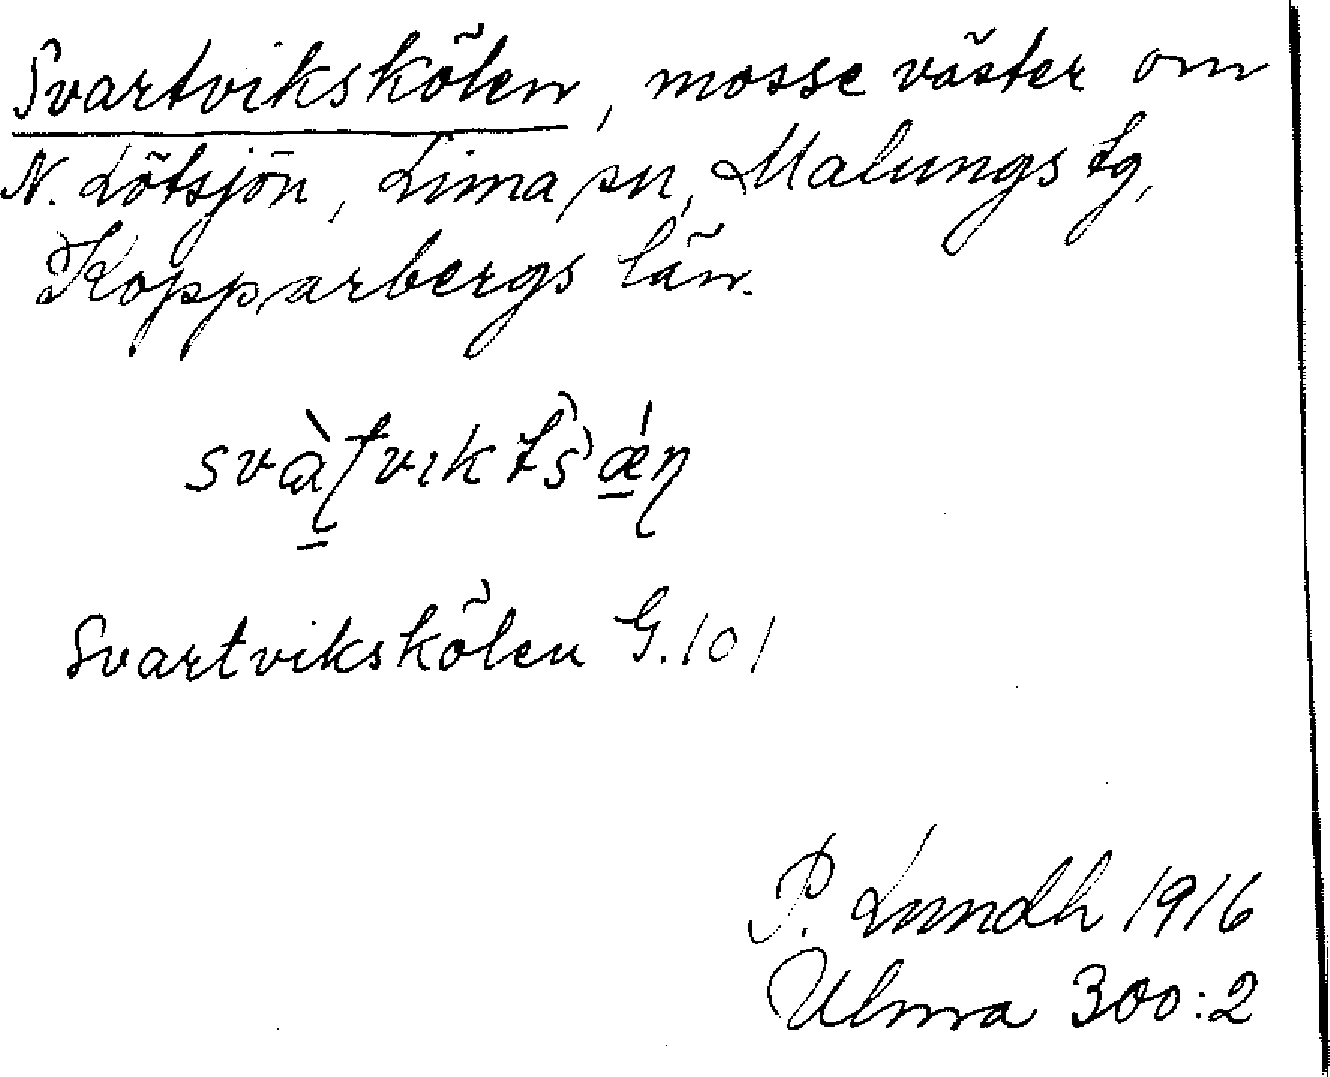 Svartvikskölen, mosse väster om
N. Lötsjön, Lima sn, Malungs tg,
Kopparbergs län.
Svartvikskölen G. 101
P. Lundh 1916
Ulma 300:2